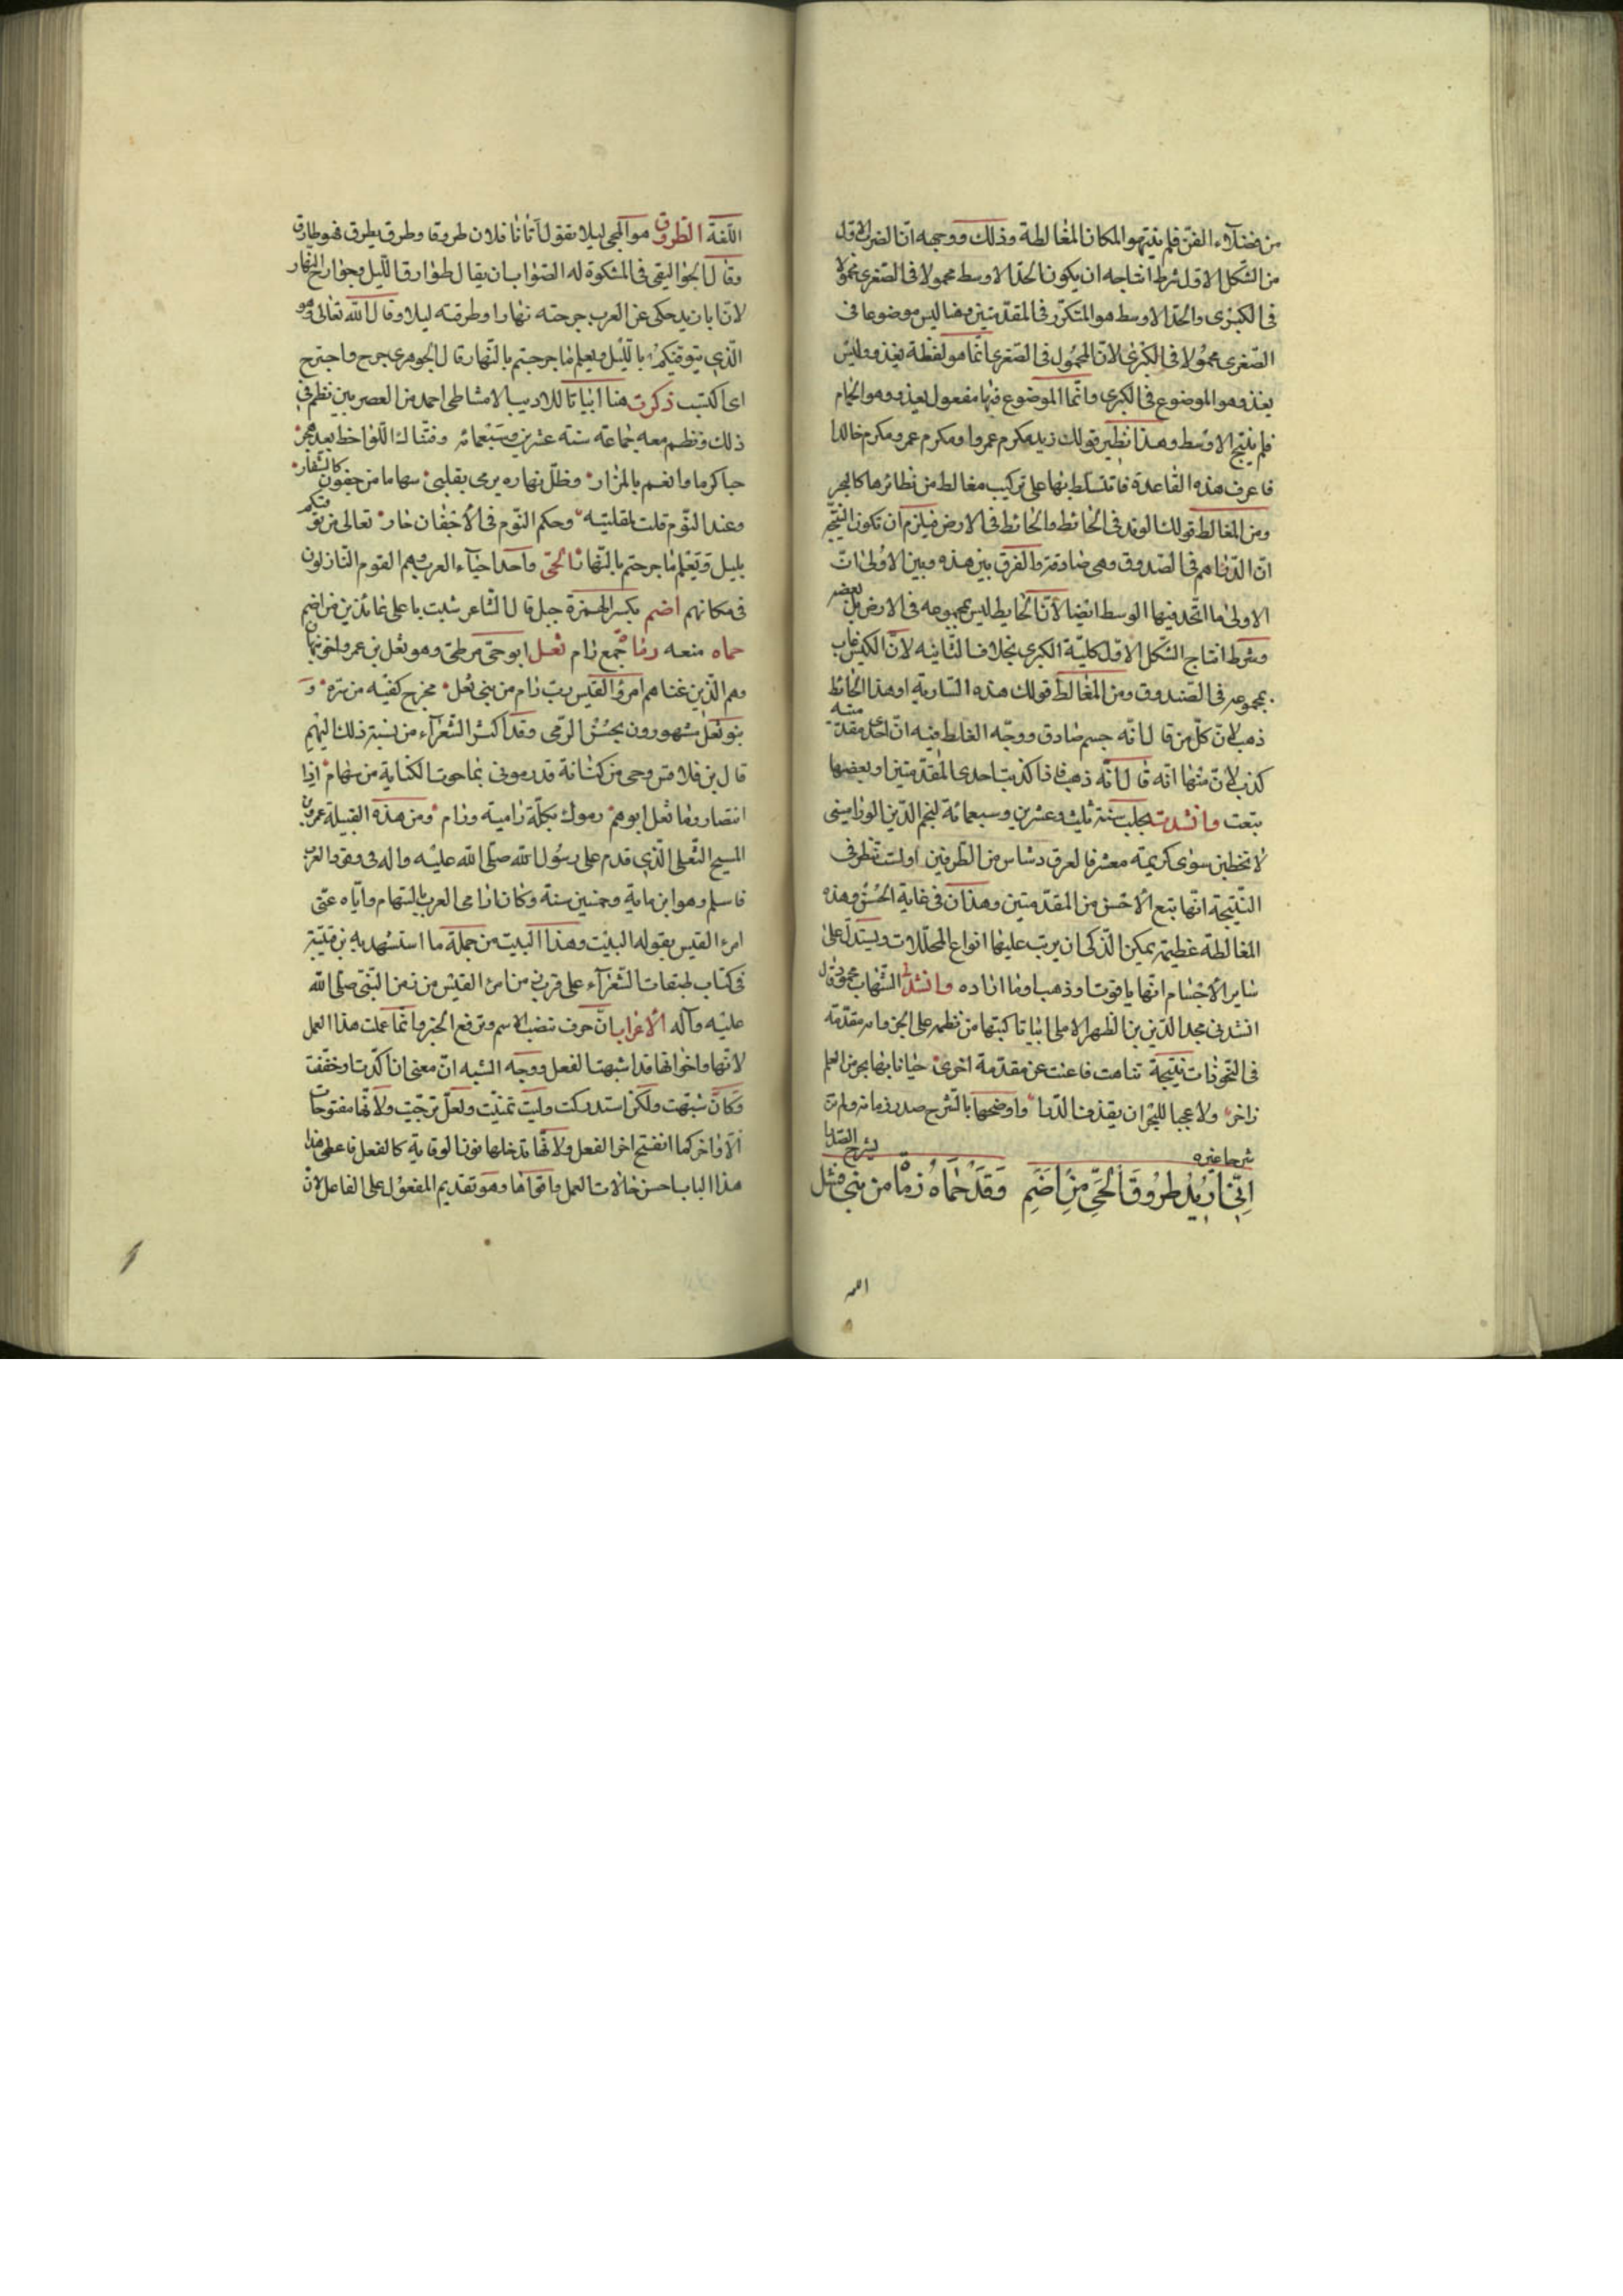 من فضلاء الفنّ فلم ينتبهوا لمكان المغالطة وذلك ووجهه انّ الضرب الاول
من الشكل الاول شرط انتاجه ان يكون الحدّ الاوسط محمولا فى الصغرى محمولا
فى الكبرى والحدّ الاوسط هو المتكرر فى المقدمتين وهنا ليس موضوعا فى
الصّغرى محمولا فى الكبرى لانّ المحمول فى الصّغرى انّما هو لفظة يغذو وليس
يغذو هو الموضوع فى الكبرى وانّما الموضوع فيها مفعول يغذو وهو الحمام
فلم ينتج الاوسط وهذا نظير قولك زيد مكرم عمروا ومكرم عمرو مكرم خالدا
فاعرف هذه القاعدة فانّك تتسلط بها على تركيب مغالط من نظائرها كالبحر
ومن المغالط قولك الوتد فى الحائط والحائط فى الارض فيلزم ان تكون النتيجة
انّ الدّراهم فى الصّندوق وهى صادقة والفرق بين هذه وبين الاولى انّ
الاولى ما اتّحد فيها الوسط ايضا لانّ الحايط ليس بمجموعه فى الارض بل بعضه
وشرط انتاج الشكل الاول كليّة الكبرى بخلاف الثانيه لانّ الكيس غاب
بمجموعه فى الصّندوق ومن المغالط قولك هذه السّارية او هذا الحائط
ذهب لانّ كلّ من قال انّه جسم صادق ووجّه الغلط فيه انّ احدى مقدمتيه
كذب لانّ منها انّه قال انّه ذهب فاذا كذبت احدى المقدّمتين او بعضها
بتعت وانشدت بحلب سنة ثلث وعشرين وسبعمائة لنجم الدّين الورامينى
لا تخطبن سوى كريمة معشر فالعرق دسّاس من الطّرفين اولست تنظر فى
النّتيجة انّها تتبع الاخسّ من المقدّمتين وهذان فى غاية الحسن وهذه
المغالطة عظيمة يمكن الذكى ان يرتب عليها انواع المحلّلات ويستدلّ على
سایر الاجسام انّها ياقوت او ذهب او ما اراده وانشد الشّهاب محمود قال
انشدنى مجد الدّين بن الظهير الاملى ابياتا كتبتها من نظمه على الجز وامه مقدّمة
فى النّحو ذات نتيجة تناهت فاغنت عن مقدّمة اخرى حبانا بها بحر من العلم
زاخر ولا عجبا للبحر ان يقذف الدّرا واوضحها بالشّرح صدر زمانه ولم تر
شرحا غيره يشرح الصّدرا
اِنّى اُريدُ طروقَ الحَىِّ مِن اِضَمٍ وَقَد حَمَاهُ رُماةٌ من بنى ثعل
اللغة
اللّغة الطروق هو المجى ليلا تقول اتانا فلان طروقا وطرق يطرق فهو طارق
وقال الجواليقى فى المشكوة له الصّواب ان يقال طوارق اللّيل وجوارح النّهار
لانّ ابا زيد حكى عن العرب جرحته نهارا وطرقته ليلا وقال الله تعالى وهو
الّذى يتوفيكم بالّليل ويعلم ما جرحتم بالنّهار قال الجوهرى جرح واجترح
اى اكتسب ذكرت هنا ابياتا للاديب الامشاطى احمد من العصريين نظم فى
ذلك ونظم معه جماعة سنة عشرين وسبعمائه وفتّاك اللّواخظ بعد هجر
حبا كرما وانعم بالمزار وظلّ نهاره يرمى بقلبى سهاما من جفون كالشّفار
وعند النّوم قلت لمقلتيه وحكم النّوم فى الاجفان جار تعالى من توفيكم
بليل ويعلم ما جرحتم بالنّهار الحىّ واحد احيآء العرب وهم القوم النّازلون
فى مكانهم اضم بكسر الهمزة جبل قال الشاعر شبت باعلى عائذين من اضم
حماه منعه رماة جمع رام ثعل ابو حىّ من طىّ وهو ثعل بن عمرو اخو نبهان
وهم الّذين عناهم امرؤ القيس ربّ رام من بنى ثعل مخرج كفيّه من ستره و
بنو ثعل مشهورون بحسن الرّمى وقد اكثر الشّعرآء من نسبة ذلك اليهم
قال بن قلاقس وحى من كنانة قد رمونى بما حوت الكناية من سهام اذا
انتصار وما ثعل ابوهم رموك بكلّة رامية ورام ومن هذه القبيلة عمرو بن
المسيح الثّعلى الّذى قدم على رسول الله صلّى الله عليه واله فى وفود العرب
فاسلم وهو ابن ماية وخمسين سنة وكان ارمى العرب بالسّهام وايّاه عنى
امرء القيس بقوله البيت وهذا البيت من جملة ما استشهد به بن قتيبة
فى كتاب طبقات الشّعرآء على قرب زمن امرئ القيس من زمن النّبى صلّى الله
عليه وآله الاعراب انّ حرف تنصب الاسم وترفع الخبر وانّما عملت هذا العمل
لانّها واخواتها قد اشبهت الفعل ووجه الشبه انّ معنى انّ اكّدت او خفّفت
وكانّ شبّهت ولكن استدركت وليت تمنيّت ولعلّ ترجّيت ولانّها مفتوحات
الاواخر كما انفتح اخر الفعل ولانّها تدخلها نون الوقاية كالفعل فاعطى هذا
هذا الباب احسن حالات العمل واقواها وهو تقديم المفعول على الفاعل لانّ